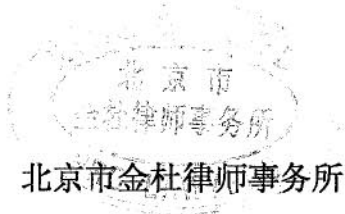 北京市
金杜律师事务所
北京市金杜律师事务所